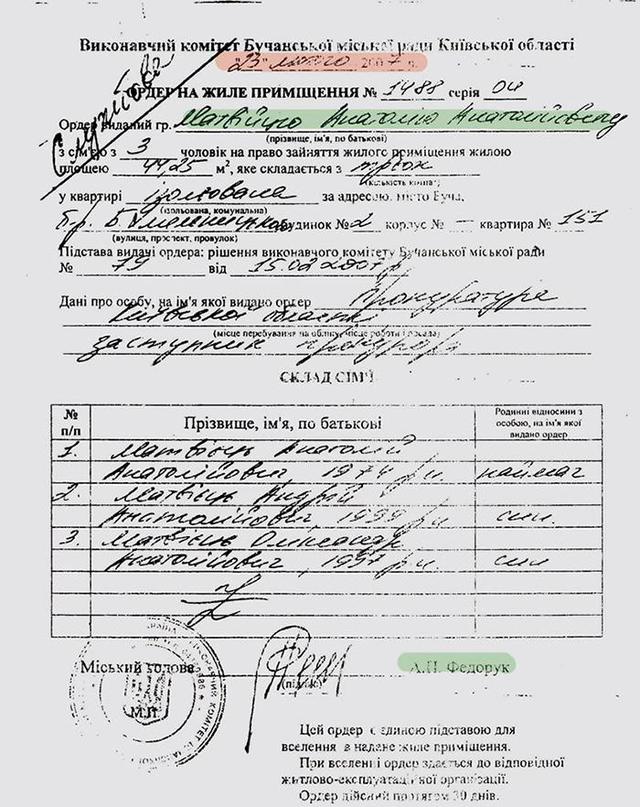 Виконавчий комітет Бучанської міської ради Київської області
"23" лютого 2007 р.
Службове
ОРДЕР НА ЖИЛЕ ПРИМІЩЕННЯ № 1488 серія 04
Ордер виданий гр. Матвійцю Анатолію Анатолійовичу
(прізвище, ім'я, по батькові)
з сім'єю з 3 чоловік на право зайняття жилого приміщення жилою
площею 44,25 м², яке складається з трьох
(кількість кімнат)
у квартирі ізольована за адресою: місто Буча,
(ізольована, комунальна)
будинок № 2 корпус № — квартира № 151
(вулиця, проспект, провулок)
Підстава видачі ордера: рішення виконавчого комітету Бучанської міської ради
№ 79 від 15.02.2007 р
Дані про особу, на ім'я якої видано ордер Прокуратура
Київської області
(місце перебування на обліку, місце роботи і посада)
заступник прокурора
СКЛАД СІМ'Ї
№ п/п
Прізвище, ім'я, по батькові
Родинні відносини з особою, на ім'я якої видано ордер
1. Матвієць Анатолій
Анатолійович, 1974 р.н. наймач
2. Матвієць Андрій
Анатолійович, 1999 р.н. син.
3. Матвієць Олександр
Анатолійович, 1997 р.н. син
Міський голова А.П. Федорук
(підпис)
М.П.
Цей ордер є єдиною підставою для
вселення в надане жиле приміщення.
При вселенні ордер здається до відповідної
житлово-експлуатаційної організації.
Ордер дійсний протягом 30 днів.